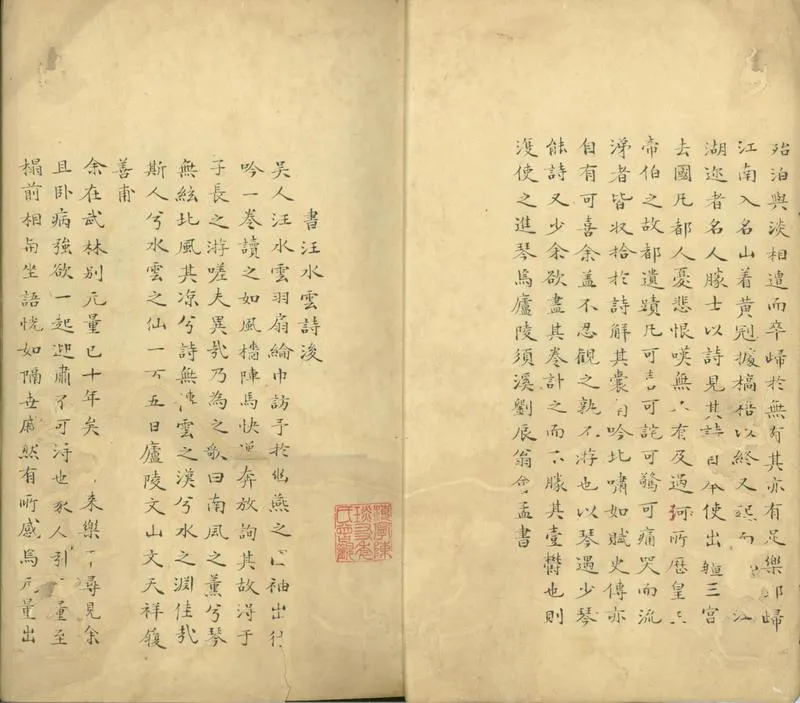 殆泊與淡相遭而卒歸於無有其亦有足樂耶歸
江南入名山着黄冠據槁梧以終又
湖遊者名人勝士以詩見其 自 使出 三宮
去國凡都人憂悲恨嘆無 有及過河所歷皇
帝伯之故都遺蹟凡可喜可詫可驚可痛哭而流
涕者皆収拾於詩解其囊 吟北嘯如賦史傳亦
自有可喜余盖不忍觀之熟 游也以琴遇少琴
能詩又少余欲盡其卷計之而 勝其壹欝也則
復使之進琴焉廬陵須溪劉辰翁會孟書
書汪水雲詩後
吳人汪水雲羽扇綸巾訪予於幽燕之 袖出行
吟一卷讀之如風檣陣馬快逸奔放詢其故得于
子長之游嗟夫異哉乃為之歌曰南風之薰兮琴
無絃北風其凉兮詩無 雲之漢兮水之淵佳哉
斯人兮水雲之仙一 五日廬陵文山文天祥履
善甫
余在武林别元量已十年矣 来樂 尋見余
且卧病強欲一起迎肅不可得也家人引 量至
榻前相向坐語恍如隔世戚然有所感焉元量出